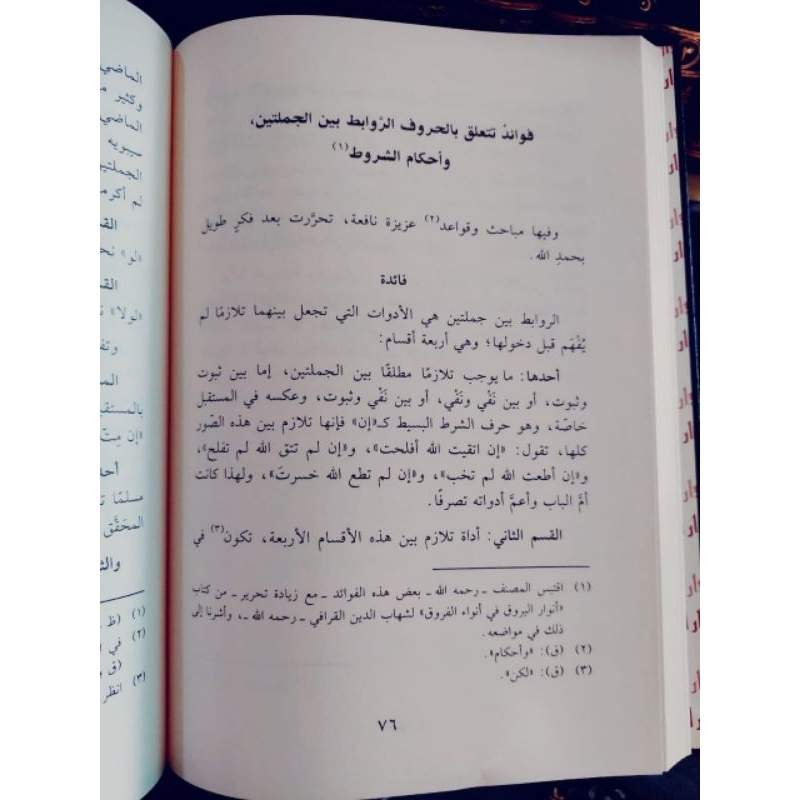 فوائدُ تتعلق بالحروف الرَّوابط بين الجملتين،
وأحكام الشروط(١)
وفيها مباحث وقواعد(٢) عزيزة نافعة، تحرَّرت بعد فكرٍ طويل
بحمدِ الله.
فائدة
الروابط بين جملتين هي الأدوات التي تجعل بينهما تلازمًا لم
يُفْهَم قبل دخولها؛ وهي أربعة أقسام:
أحدها: ما يوجب تلازمًا مطلقًا بين الجملتين، إما بين ثبوت
وثبوت، أو بين نَفْي ونَفْي، أو بين نَفْي وثبوت، وعكسه في المستقبل
خاصّة، وهو حرف الشرط البسيط كـ«إن» فإنها تلازم بين هذه الصّور
كلها، تقول: «إن اتقيت الله أفلحت»، و«إن لم تتق الله لم تفلح»،
و«إن أطعت الله لم تخب»، و«إن لم تطع الله خسرتَ»، ولهذا كانت
أمَّ الباب وأعمَّ أدواته تصرفًا.
القسم الثاني: أداة تلازم بين هذه الأقسام الأربعة، تكون(٣) في
(١) اقتبس المصنف ـ رحمه الله ـ بعض هذه الفوائد ـ مع زيادة تحرير ـ من كتاب
«أنوار البروق في أنواء الفروق» لشهاب الدين القرافي ـ رحمه الله ـ، وأشرنا إلى
ذلك في مواضعه.
(٢) (ق): «وأحكام».
(٣) (ق): «لكن».
٧٦
الماضي
وكثير
الماضي
سيبويه
الجملتين
لم
«لو»
«لولا»
بالمستقبل
مسلمًا
المحَقَّق
(١)
(٢) في
(٣) انظر